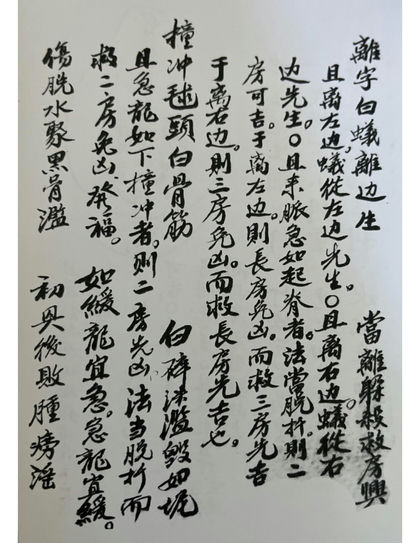 離字白蟻離边生　當離躲殺救房興
且离左边,蟻從左边先生。〇且離右边。蟻從右
边先生。〇且来脈急如起脊者。法當脱杵。則二
房可吉。于离左边。則長房先凶。而救三房先吉
于离右边。則三房先凶。而救長房先吉也。
撞冲毬頭白骨筋　白碎淡濫毀如坭
且急龍如下撞冲者。則二房先凶。法当脱杵而
救二房免凶發福。如緩龍宜急。急龍宜緩。
傷脱水聚黑骨濫　初興後敗腫癆淫